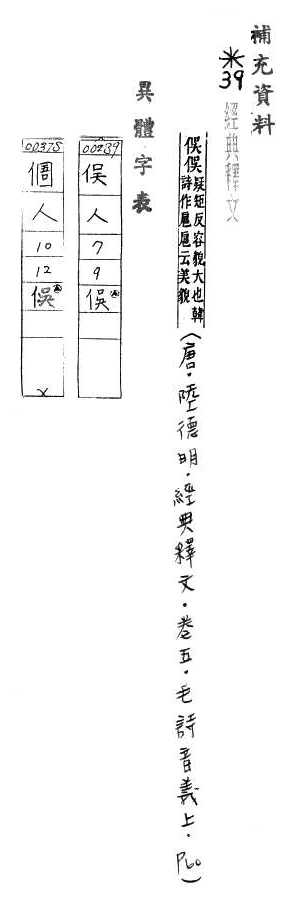 補充資料
※39 經典釋文
俁俁疑矩反容貌大也韓
詩作扈扈云美貌
(唐.陸德明.經典釋文.卷五.毛詩音義上.P60)
異體字表
00239
俁
人
7
9
俁
00375
個
人
10
12
俁
×